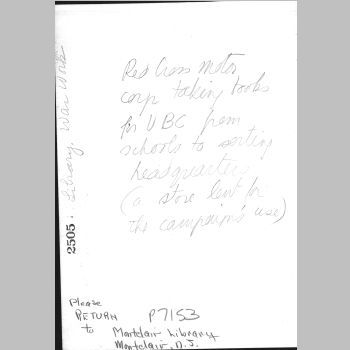 Red Cross motor
corp taking books
for VBC from
schools to sorting
headquarters
(a store lent for
the campaign's use)
Library. War Work
2505.
Please
RETURN P7153
to Montclair Library
Montclair, N.J.